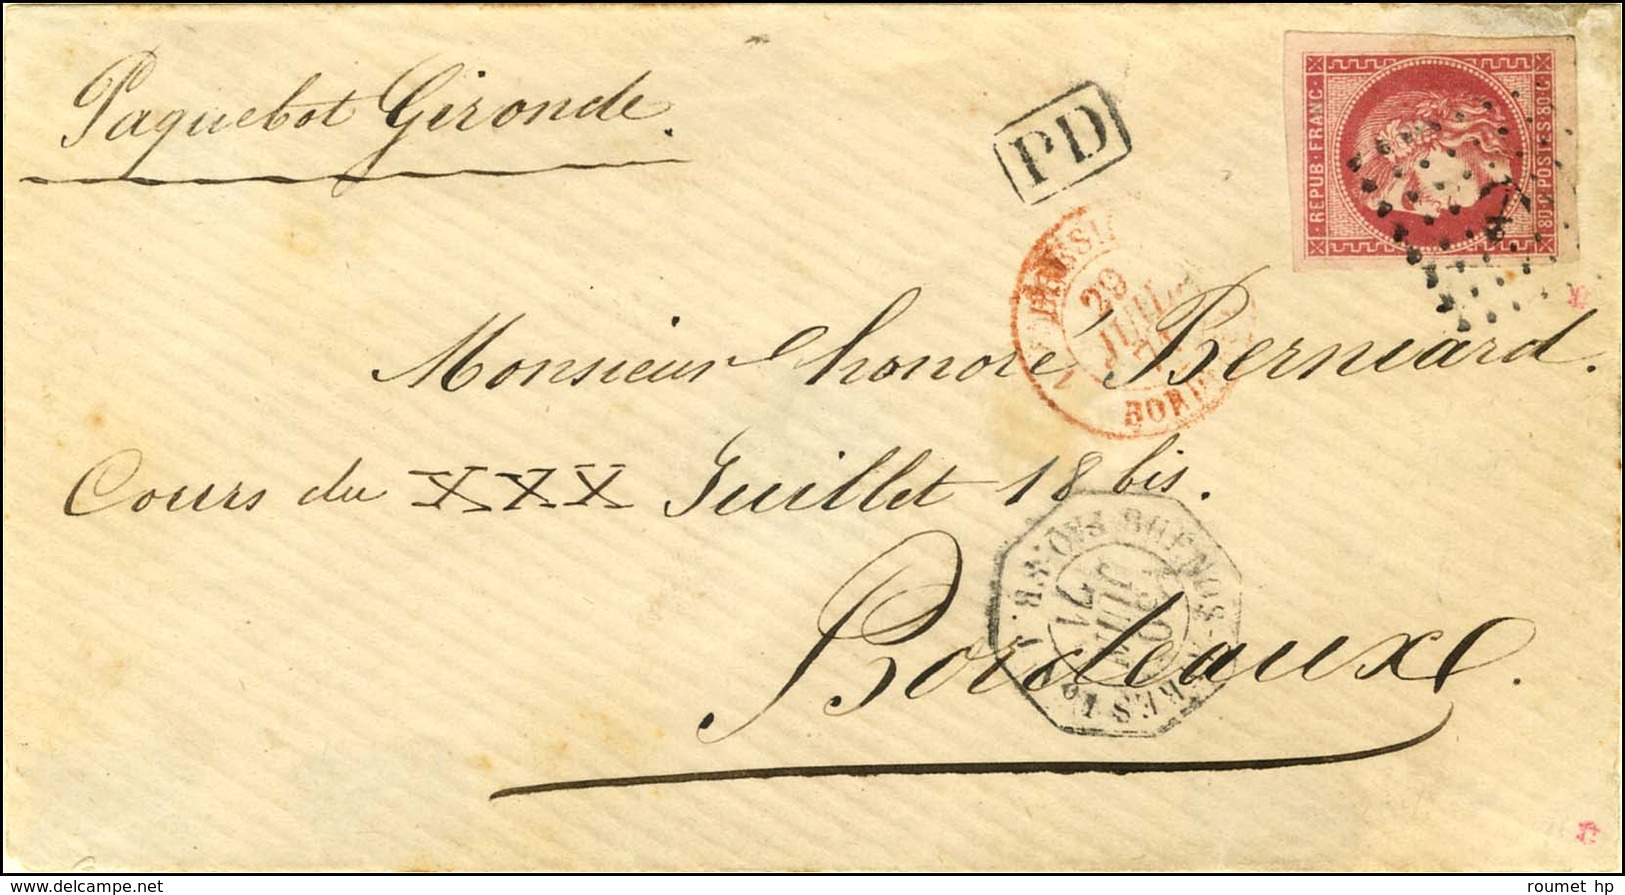 Paquebot Gironde.
PD
REPUB · FRANC
80 · C · POSTES 80 C
BRESIL
29
JUIL
BORD
Monsieur honoré Berniard.
Cours du XXX Juillet 18 bis.
BUENOS
JUIL
71
Bordeaux.
roumet hp
www.delcampe.net